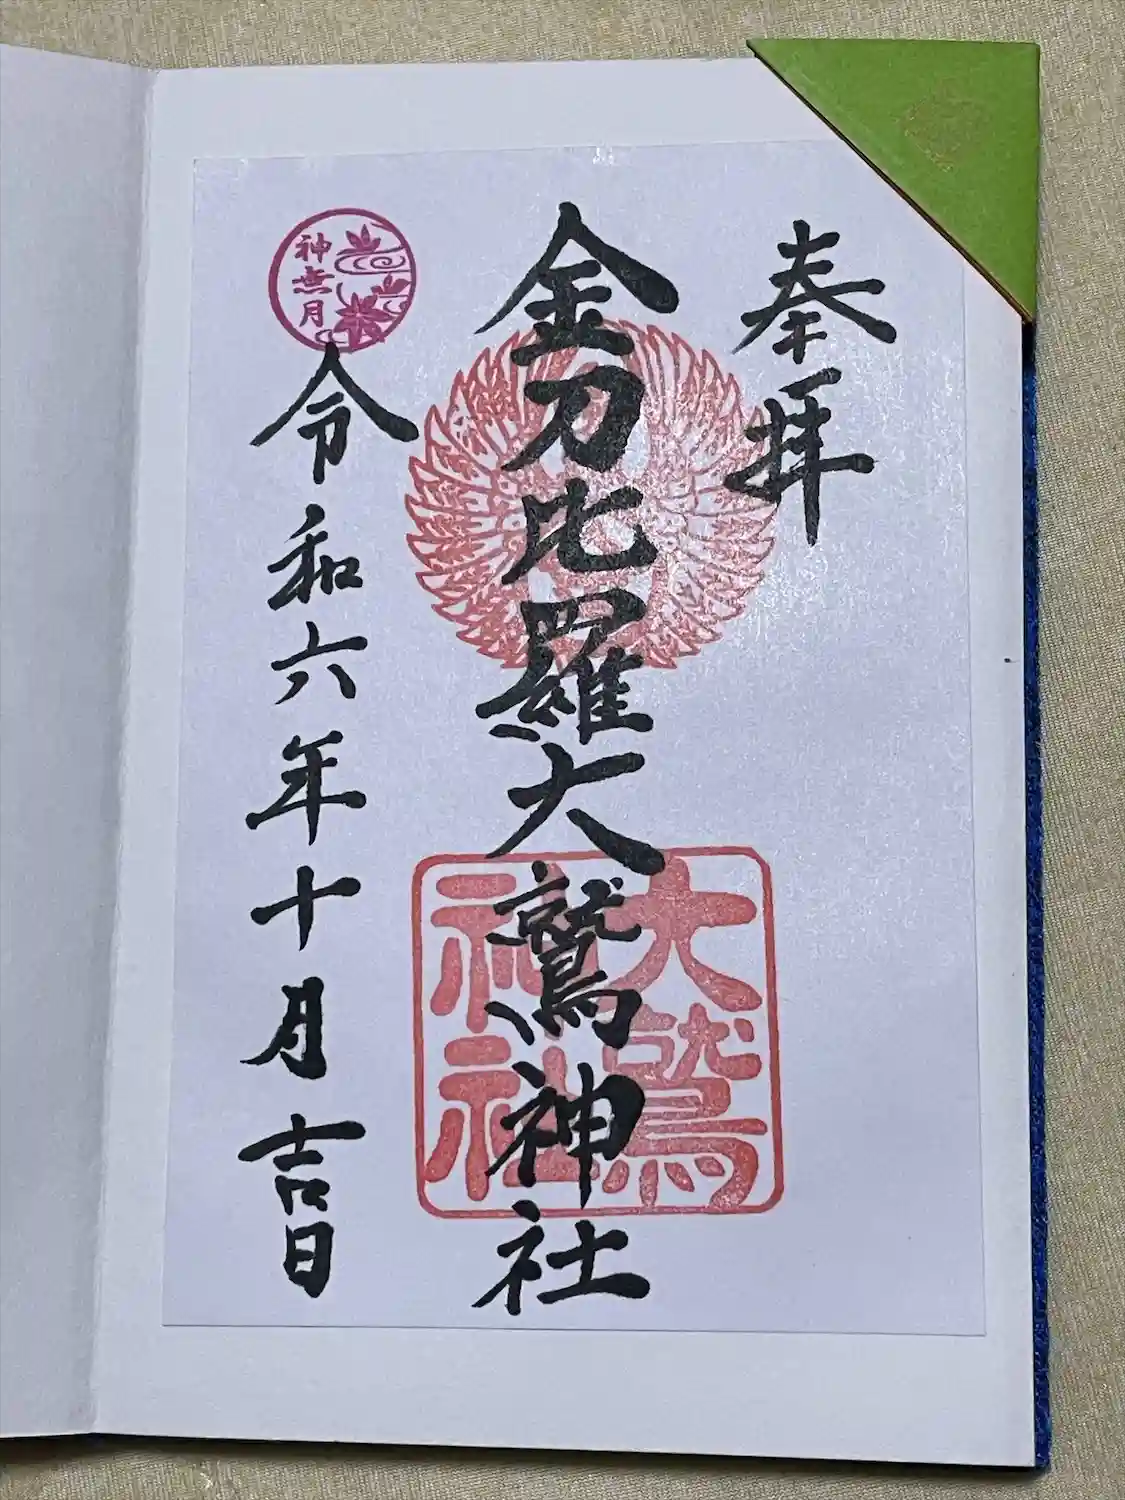 奉拝
金刀比羅大鷲神社
大鷲
神社
神無月
令和六年十月吉日